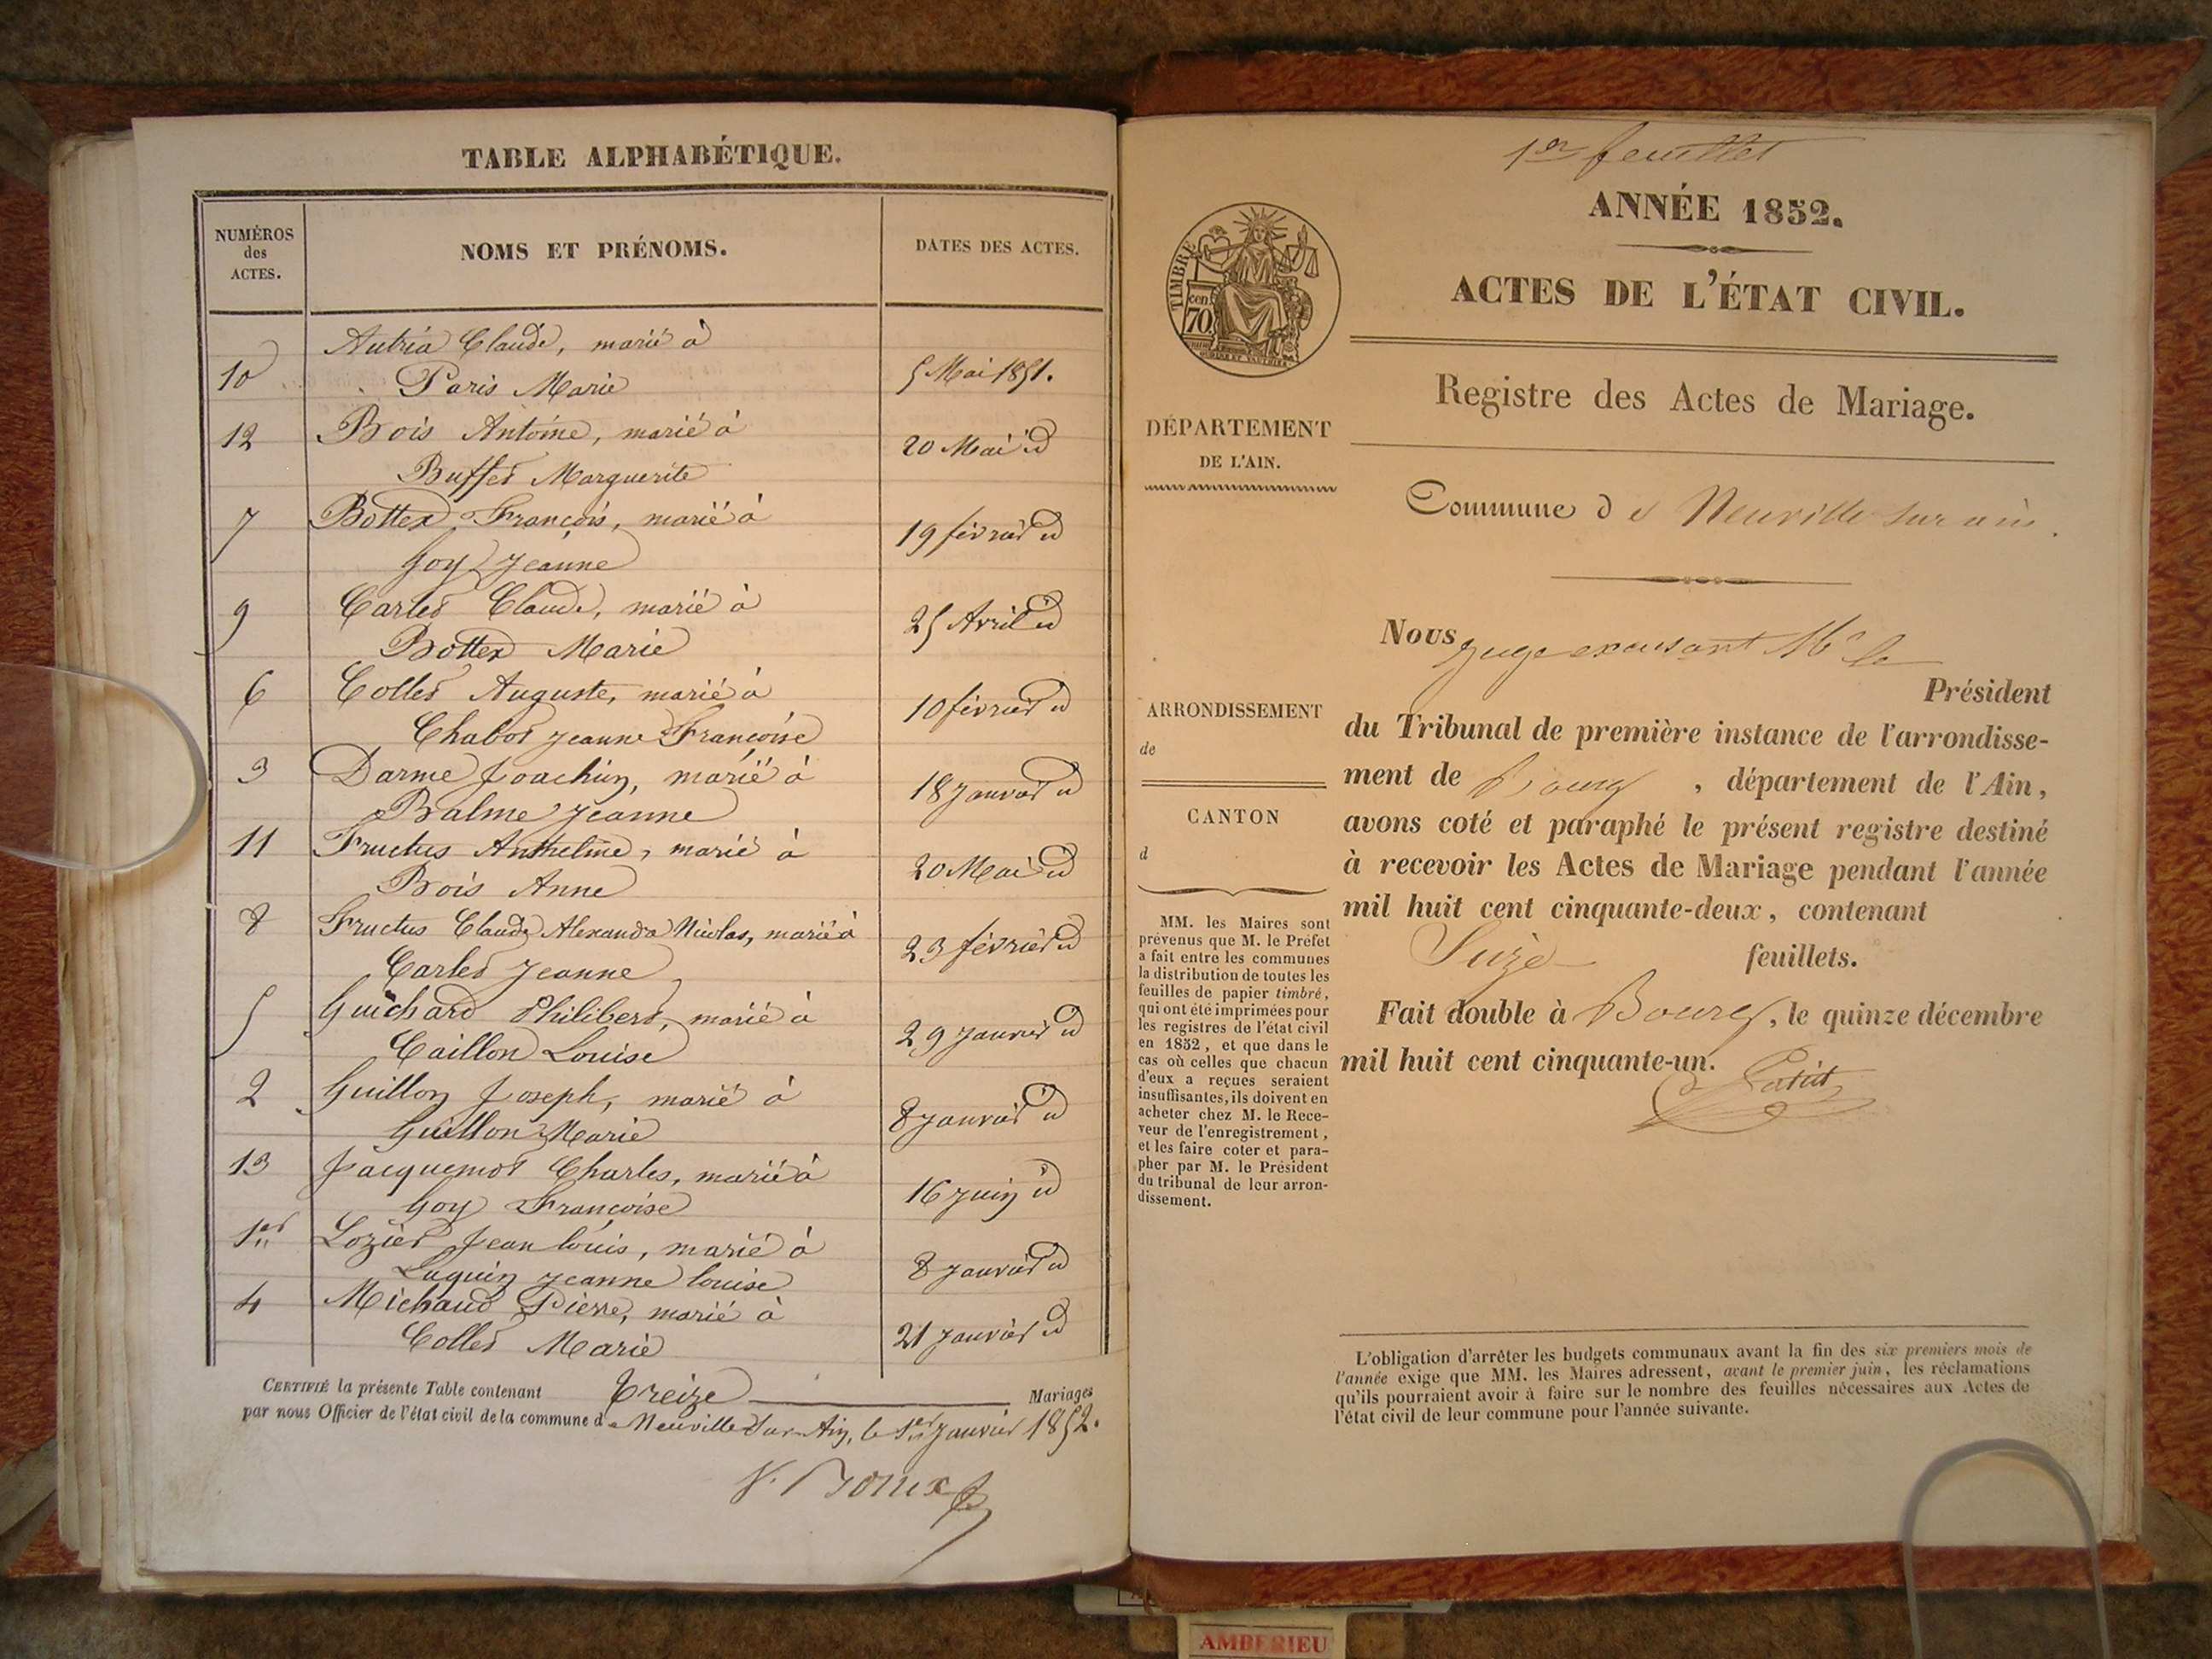 TABLE ALPHABÉTIQUE.
NUMÉROS
des
ACTES.
NOMS ET PRÉNOMS.
DATES DES ACTES.
Autria Claude, marié à
10 Paris Marie 5 Mai 1851.
12 Bois Antoine, marié à 20 Mai id
Buffet Marguerite
7 Bottex François, marié à 19 février id
Goy Jeanne
9 Carlet Claude, marié à 25 Avril id
Bottex Marie
6 Collet Auguste, marié à 10 février id
Chabot Jeanne Françoise
3 Darme Joachim, marié à 18 Janvier id
Balme Jeanne
11 Fructus Anthelme, marié à 20 Mai id
Bois Anne
8 Fructus Claude Alexandre Nicolas, marié à 23 février id
Carlet Jeanne
5 Guichard Philibert, marié à 29 Janvier id
Caillon Louise
2 Guillon Joseph, marié à 8 Janvier id
Guillon Marie
13 Jacquemot Charles, marié à 16 Juin id
Goy Françoise
1er Lozier Jean louis, marié à 8 Janvier id
Luquin Jeanne louise
4 Michaud Pierre, marié à 21 Janvier id
Collet Marie
CERTIFIÉ la présente Table contenant Treize Mariages
par nous Officier de l'état civil de la commune de Neuville sur Ain, le 1er Janvier 1852.
1er feuillet
ANNÉE 1852.
ACTES DE L'ÉTAT CIVIL.
Registre des Actes de Mariage.
TIMBRE
70 cen
DÉPARTEMENT
DE L'AIN.
Commune de Neuville sur ain.
ARRONDISSEMENT
de
CANTON
d
MM. les Maires sont
prévenus que M. le Préfet
a fait entre les communes
la distribution de toutes les
feuilles de papier timbré,
qui ont été imprimées pour
les registres de l'état civil
en 1852, et que dans le
cas où celles que chacun
d'eux a reçues seraient
insuffisantes, ils doivent en
acheter chez M. le Rece-
veur de l'enregistrement,
et les faire coter et para-
pher par M. le Président
du tribunal de leur arron-
dissement.
Nous Juge excusant Mr le
Président
du Tribunal de première instance de l'arrondisse-
ment de Bourg, département de l'Ain,
avons coté et paraphé le présent registre destiné
à recevoir les Actes de Mariage pendant l'année
mil huit cent cinquante-deux, contenant
feuillets.
Fait double à Bourg, le quinze décembre
mil huit cent cinquante-un.
L'obligation d'arrêter les budgets communaux avant la fin des six premiers mois de
l'année exige que MM. les Maires adressent, avant le premier juin, les réclamations
qu'ils pourraient avoir à faire sur le nombre des feuilles nécessaires aux Actes de
l'état civil de leur commune pour l'année suivante.
AMBERIEU